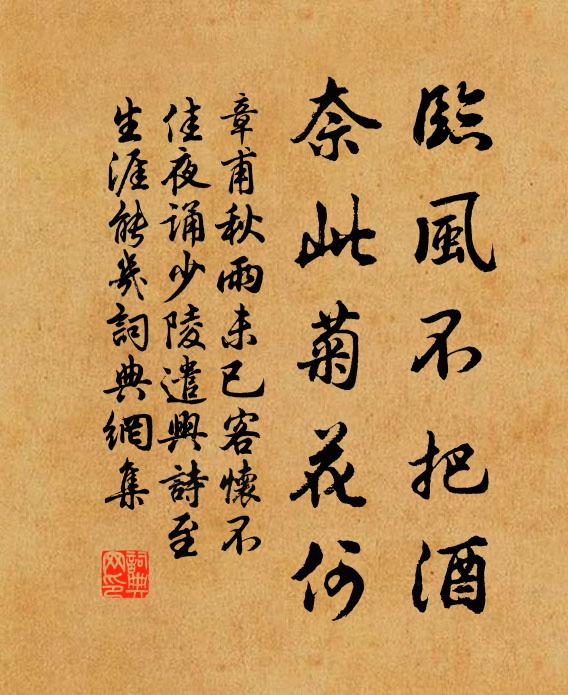 臨風不把酒
奈此菊花何
章甫秋雨未已客懷不
佳夜誦少陵遣興詩至
生涯能幾詞典網集
詞典网印